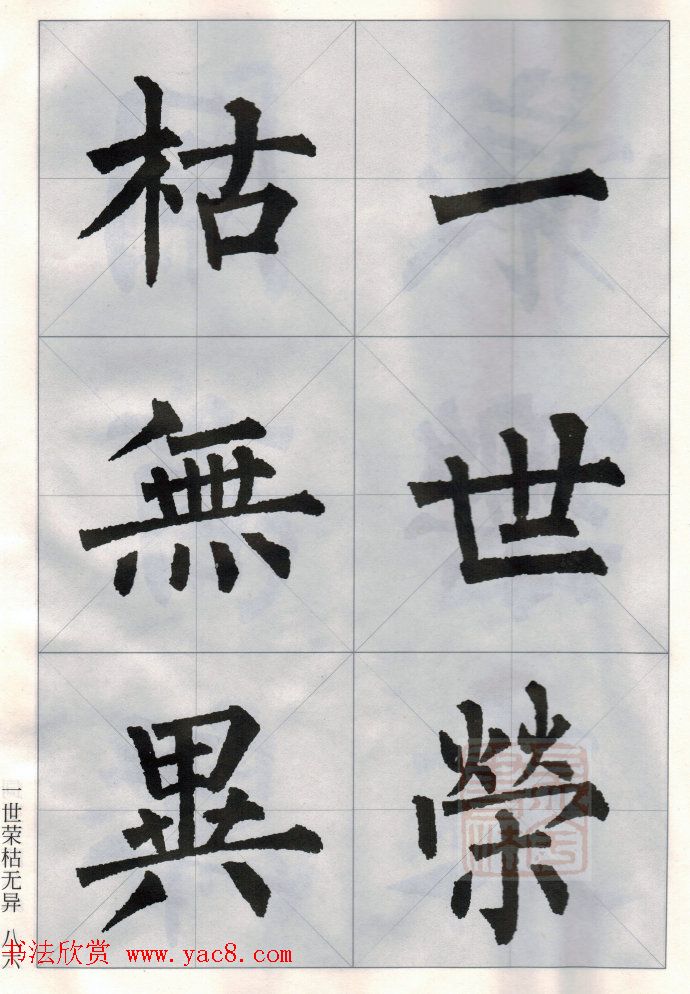 一世榮
枯無異
一世荣枯无异 八六
书法欣赏 www.yac8.com